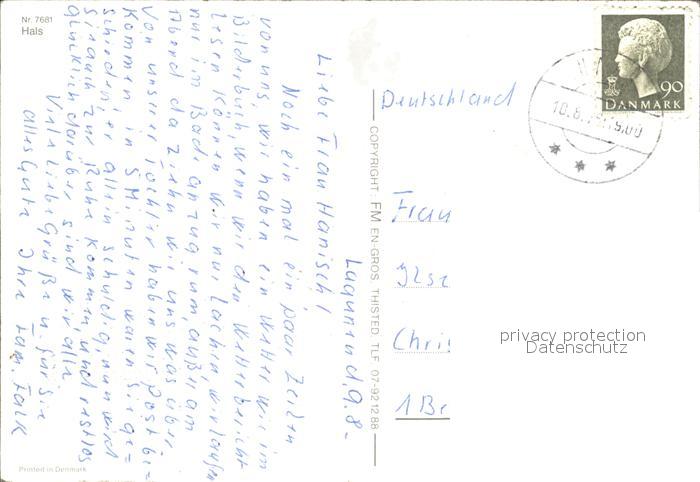 Nr. 7681
Hals
Laguenen d. 9.8.
Liebe Frau Hanisch!
Noch ein mal ein paar Zeilen
von uns, wir haben ein Wetter wie im
Bilderbuch, wenn wir den Wetterbericht
lesen können wir nur lachen, wir laufen
nur im Badeanzug rum außer am
Abend da ziehn wir uns was über
von unserer Tochter haben wir Post be=
kommen in 5 Minuten waren sie ge=
schieden, er allein schuldig, nun wird
sie auch zur Ruhe kommen, und restlos
glücklich darüber sind wir alle
Viele liebe Grüße u. für Sie
alles Gute Ihre Fam. Falk
Printed in Denmark
COPYRIGHT FM EN-GROS, THISTED, TLF 07-92 12 88
90
DANMARK
10.8.
Deutschland
Frau
Ilse
Chri
1 Be
privacy protection
Datenschutz